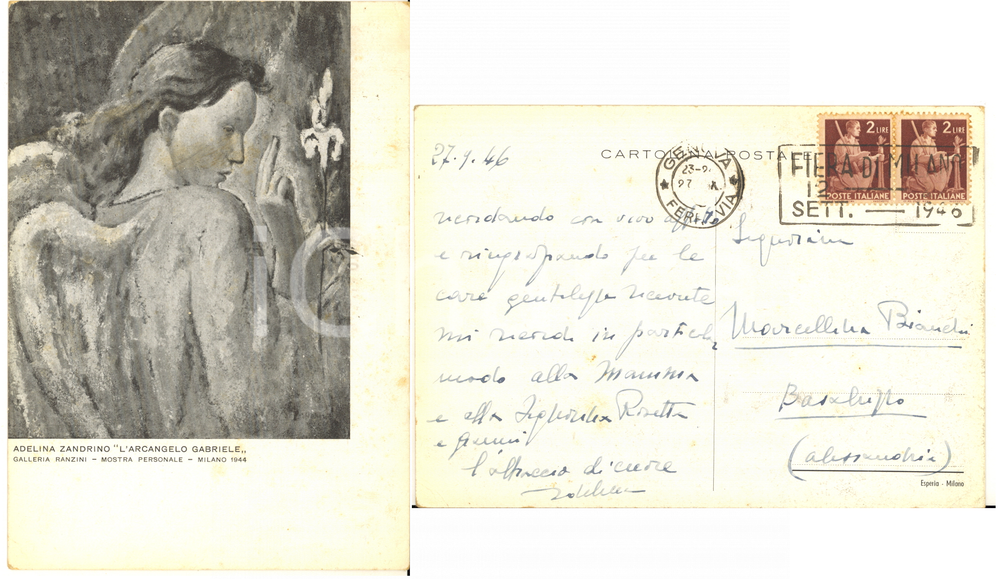 ADELINA ZANDRINO "L'ARCANGELO GABRIELE„
GALLERIA RANZINI – MOSTRA PERSONALE – MILANO 1944
27.9.46
CARTOLINA POSTALE
GENOVA
FERROVIA
FIERA DI MILANO
12
SETT. — 1946
2 LIRE
POSTE ITALIANE
2 LIRE
POSTE ITALIANE
ricordando con vivo
e ringraziando per le
care gentilezze ricevute
mi ricordi in particolar
modo alla Mamma
e alla Signorina Rosetta
e
l'abbraccio di cuore
Signorina
Marcellina Bianchi
Basaluzzo
(Alessandria)
Esperia - Milano